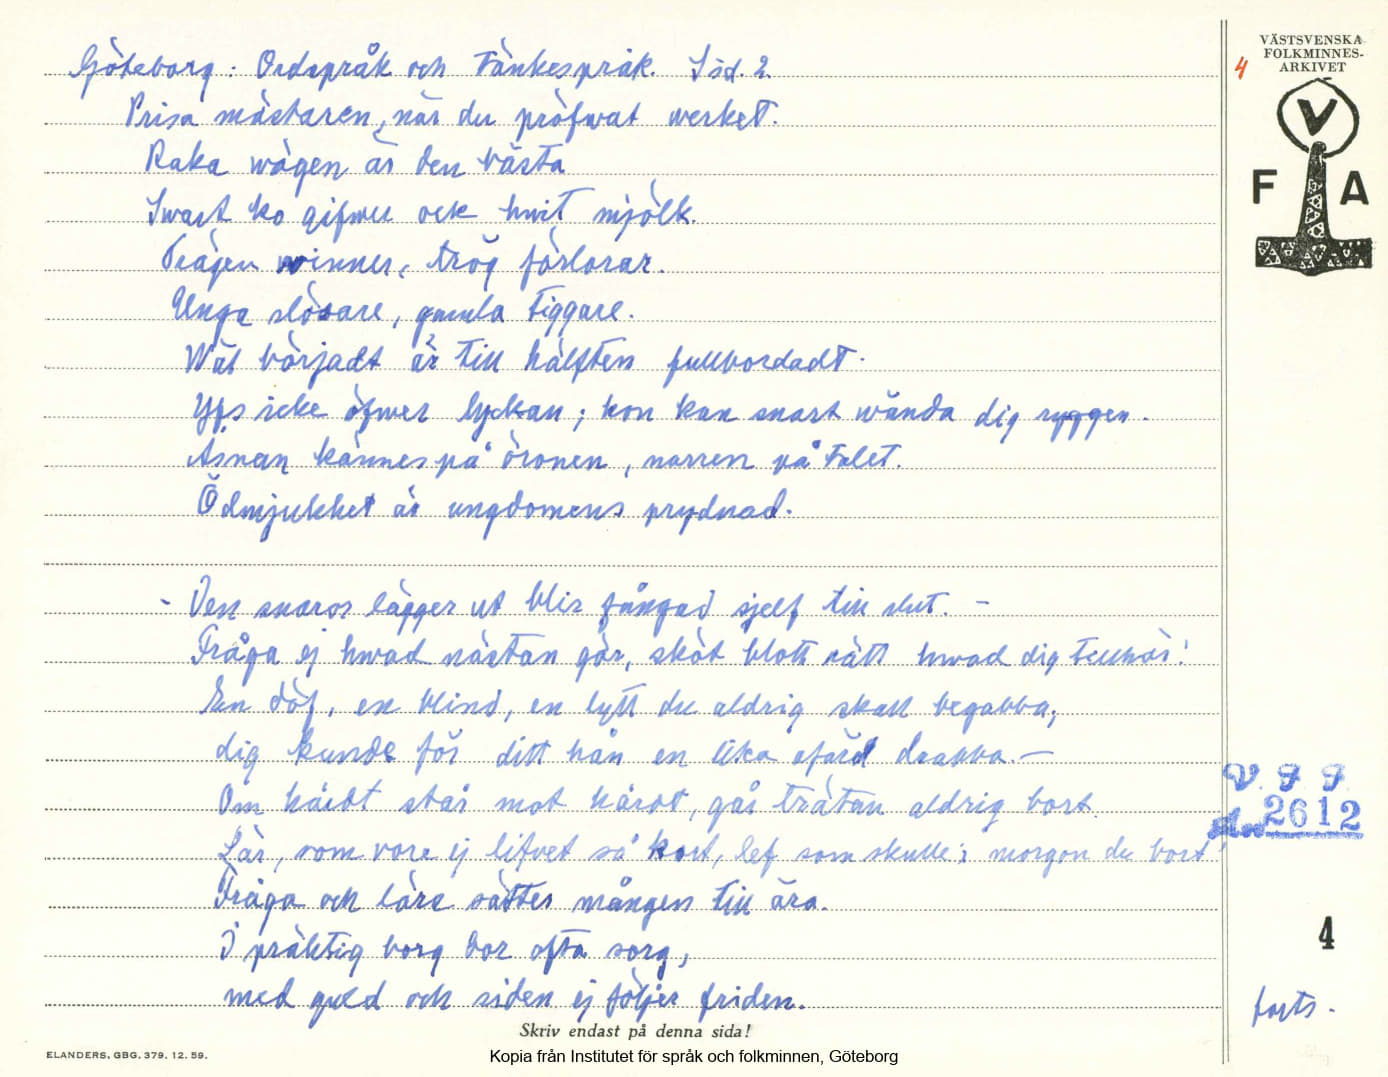 Göteborg: Ordspråk och Tänkespråk. Sid. 2.
Prisa mästaren, när du pröfwat werket.
Raka wägen är den bästa
Swart ko gifwer ock hwit mjölk.
Trägen winner, trög förlorar.
Unga slösare, gamla tiggare.
Wäl börjadt är till hälften fullbordadt.
Yfs icke öfwer lyckan; hon kan snart wända dig ryggen.
Åsnan kännes på öronen, narren på talet.
Ödmjukhet är ungdomens prydnad.
- Den snaror lägger ut blir fångad sjelf till slut. -
Fråga ej hwad nästan gör, sköt blott rätt hwad dig tillhör!
En döf, en blind, en lytt du aldrig skall begabba,
dig kunde för ditt hån en lika ofärd drabba. -
Om hårdt står mot hårdt, går trätan aldrig bort.
Lär, som vore ej lifvet så kort, lef som skulle i morgon du bort!
Fråga och lära sätter mången till ära.
I präktig borg bor ofta sorg,
med guld och siden ej följer friden.
Skriv endast på denna sida!
ELANDERS, GBG. 379. 12. 59.
Kopia från Institutet för språk och folkminnen, Göteborg
VÄSTSVENSKA
FOLKMINNES-
ARKIVET
4
V
F A
V. F. F.
2612
4
forts.